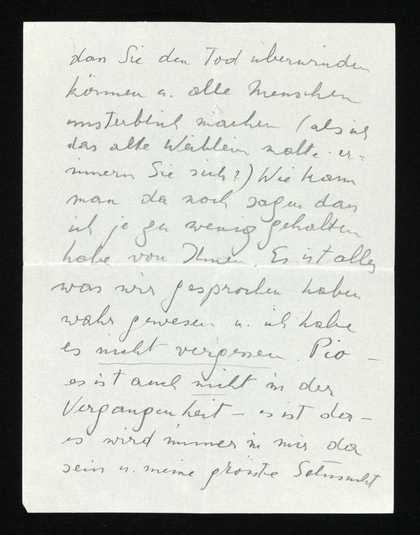 dan Sie den Tod überwinden
können u. alle Menschen
unsterblich machen (als ich
das alte Weiblein malte. er-
innern Sie sich?) Wie kann
man da noch sagen dan
ich je zu wenig gehalten
habe von Ihnen. Es ist alles
was wir gesprochen haben
wahr gewesen u. ich habe
es nicht vergessen. Pio –
es ist auch nicht in der
Vergangenheit – es ist da –
es wird immer in mir da
sein u. meine grösste Sehnsucht